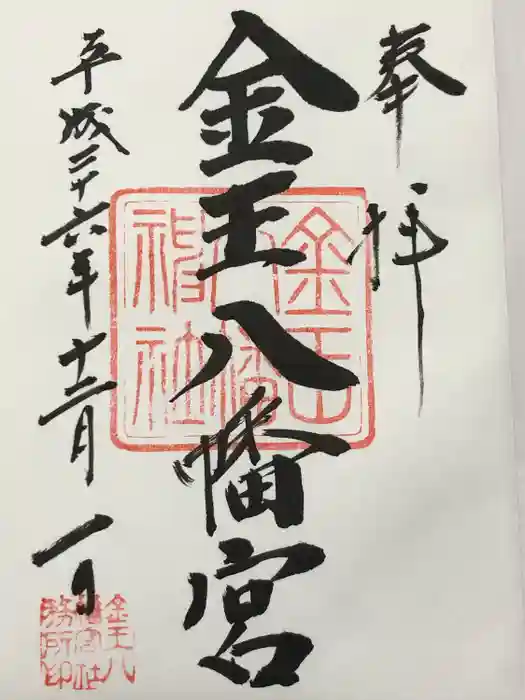 奉拝
金王八幡宮
平成二十六年十二月一日
金王八
幡宮社
務所印